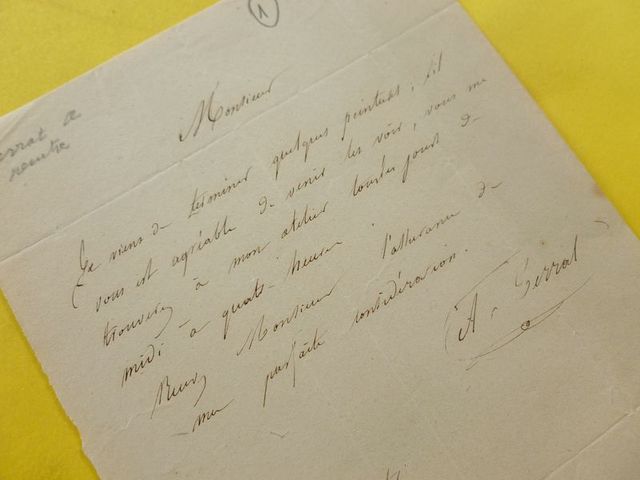 1
Monsieur
Je viens de terminer quelques peintures, s'il
vous est agréable de venir les voir, vous me
trouverez à mon atelier tous les jours de
midi à quatre heures.
Recevez Monsieur l'assurance de
ma parfaite considération.
A. Serrat